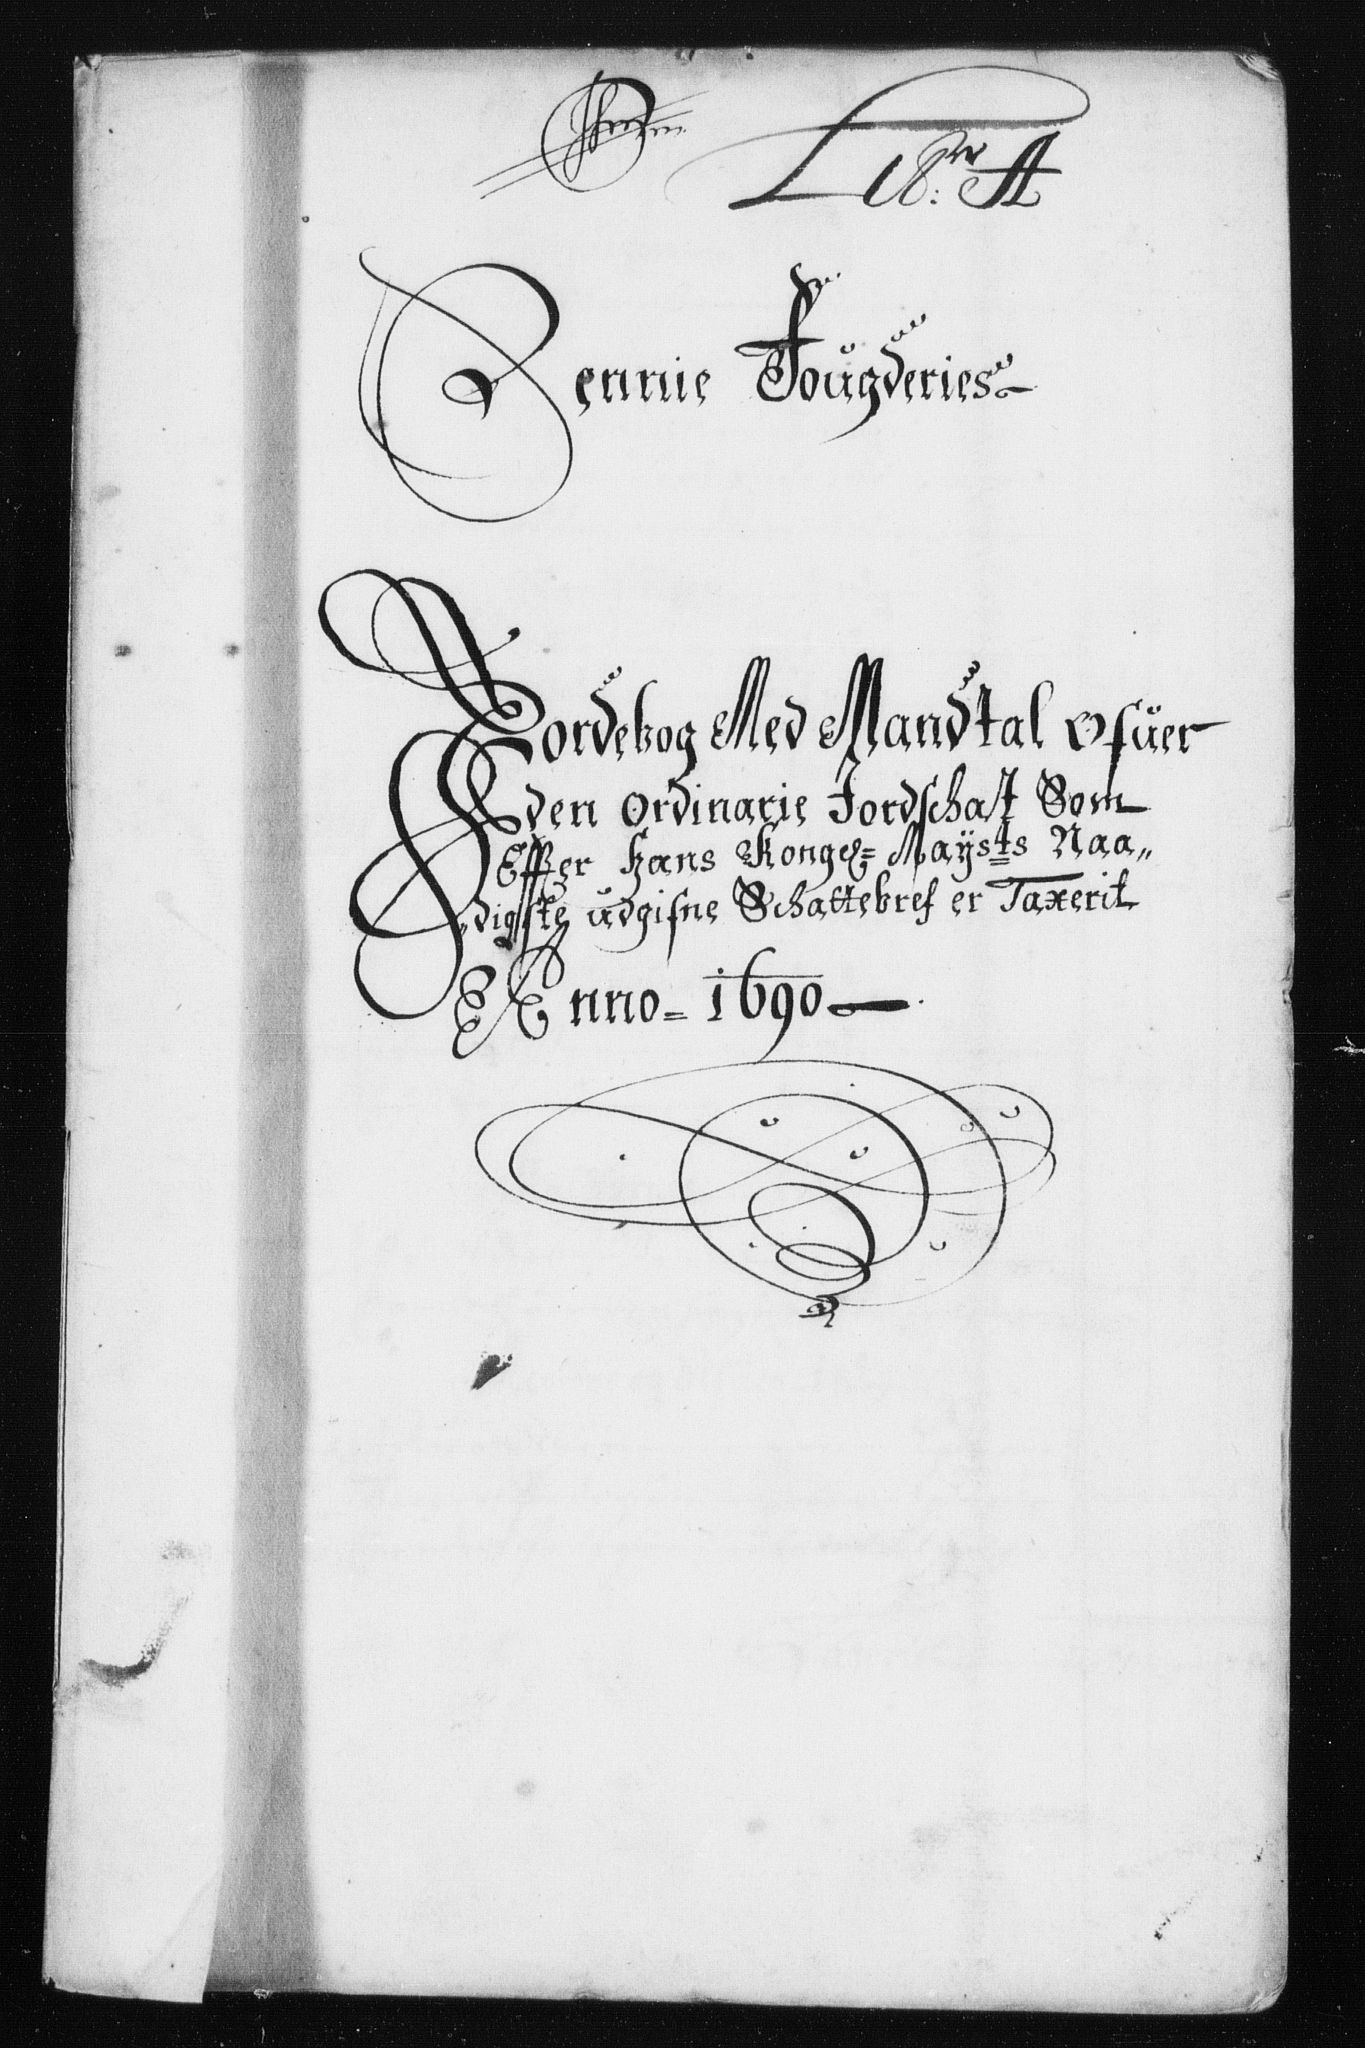 Litr: A
Bennie Fougderies
Jordebog Med Mandtal Ofuer
den Ordinarie Jordschat Som
Effter Hans Konge= Maÿsts Naa„
digste udgifne Schattebref er Taxerit
Anno= 1690